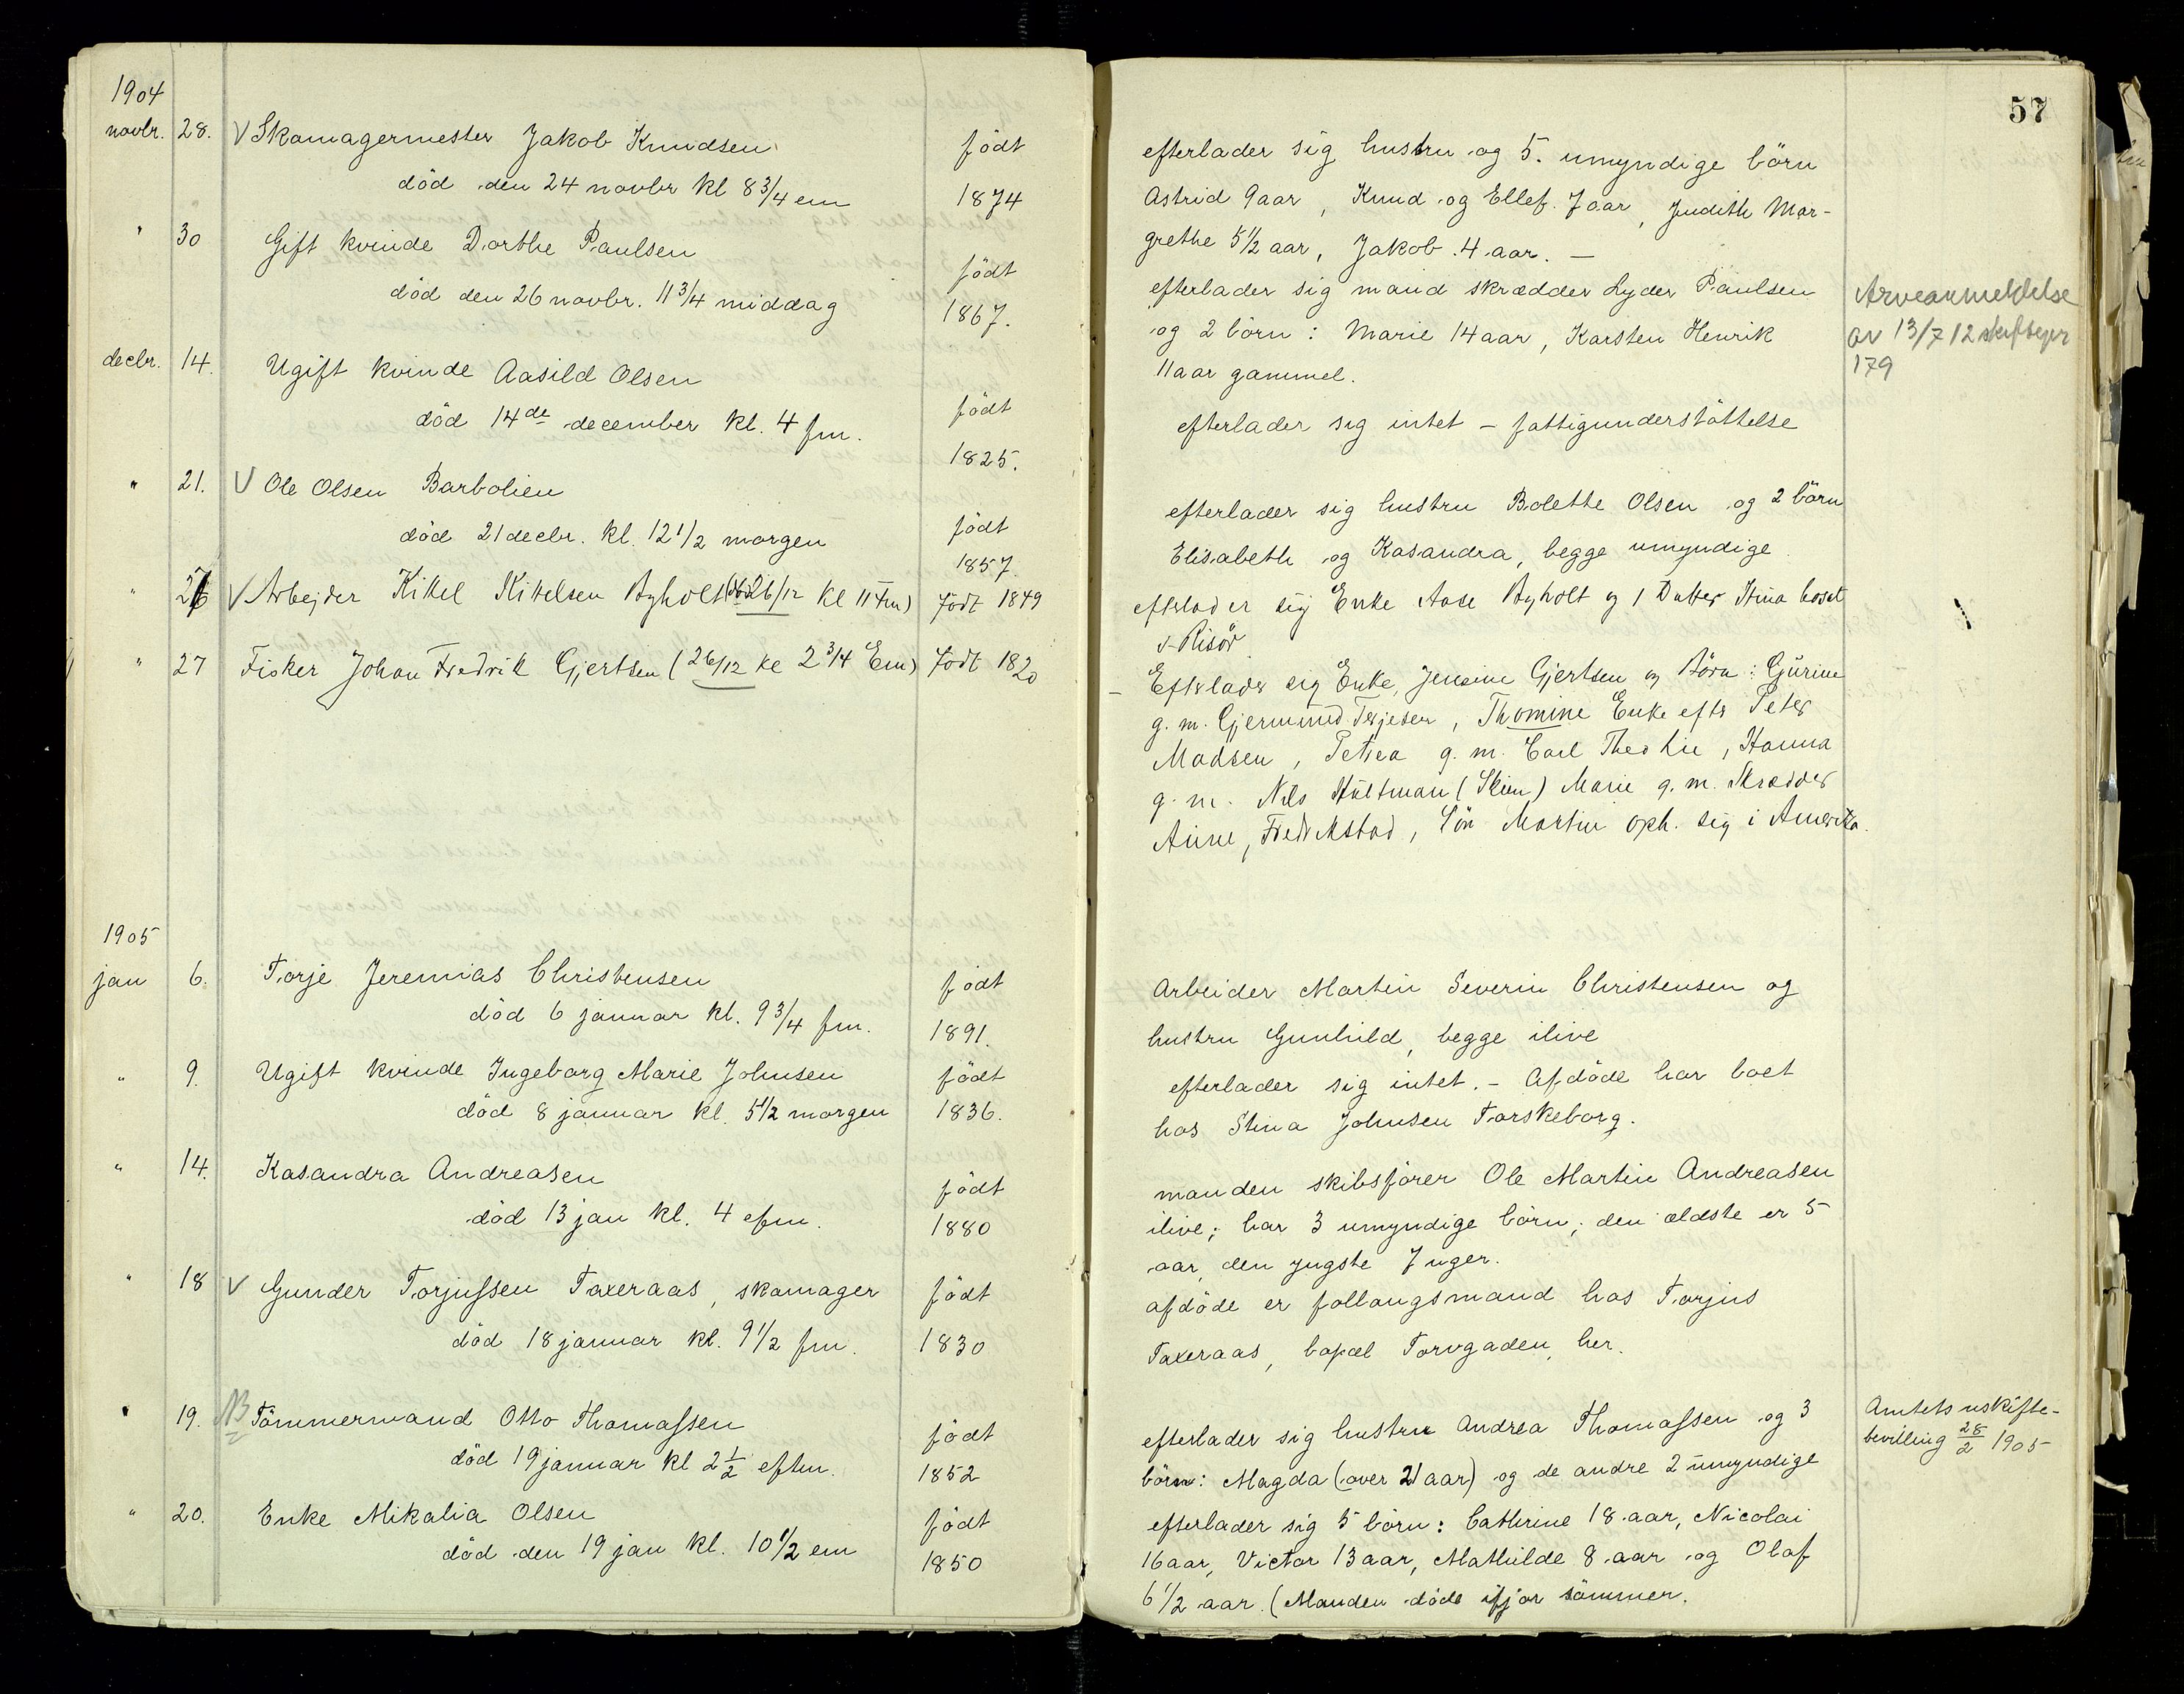 1904
novbr. 28. V Skomagermester Jakob Knudsen født
død den 24 novbr kl 8 3/4 em 1874
" 30 Gift kvinde Dorthe Paulsen født
død den 26 novbr. 11 3/4 middag 1867.
decbr. 14. Ugift kvinde Aasild Olsen født
død 14de december kl. 4 fm. 1825.
" 21. V Ole Olsen Barbolien født
død 21 decbr. kl. 12 1/2 morgen 1857
" V Arbejder Kittel Kittelsen Byholt (død 26/12 kl 11 Fm) Født 1849
" 27 Fisker Johan Fredrik Gjertsen (26/12 kl 2 3/4 Em) Født 1820
1905
jan 6. Torje Jeremias Christensen født
død 6 januar kl. 9 3/4 fm. 1891.
" 9. Ugift kvinde Ingeborg Marie Johnsen født
død 8 januar kl. 5 1/2 morgen 1836.
" 14. Kasandra Andreasen født
død 13 jan kl. 4 efm. 1880
" 18 V Gunder Torjussen Taxeraas, skomager født
død 18 januar kl. 9 1/2 fm. 1830
" 19. NB Tömmermand Otto Thomassen født
død 19 januar kl 2 1/2 eftm. 1852
" 20. Enke Mikalia Olsen født
død den 19 jan kl. 10 1/2 em 1850
57
efterlader sig hustru og 5. umyndige börn
Astrid 9 aar, Knud og Ellef 7 aar, Judith Mar-
grethe 5 1/2 aar, Jakob 4 aar. —
efterlader sig mand skrædder Lyder Paulsen
og 2 börn: Marie 14 aar, Karsten Henrik
11 aar gammel.
Arveanmeldelse
av 13/7 12 skiftepr
179
efterlader sig intet – fattigunderstöttelse
efterlader sig hustru Bolette Olsen og 2 börn
Elisabeth og Kasandra, begge umyndige
efterlader sig Enke Aase Byholt og 1 Datter Stina bosat
i Risör
– Efterlader sig Enke, Jensine Gjertsen og Börn: Gurine
g. m. Gjermund Terjesen, Thomine Enke efter Peter
Madsen, Petrea g. m. Carl Theo Lie, Hanna
g. m. Nils Hultman (Skien) Marie g. m. Skrædder
Fredrikstad, Sön Martin oph. sig i Amerika.
Arbeider Martin Severin Christensen og
hustru Gunhild, begge ilive
efterlader sig intet. – Afdöde har boet
hos Stina Johnsen Torskeborg.
manden skibsförer Ole Martin Andreasen
ilive; har 3 umyndige börn; den ældste er 5
aar, den yngste 7 uger.
afdöde er follougsmand hos Torjus
Taxeraas, bopæl Torvgaden, her.
efterlader sig hustru Andrea Thomassen og 3
börn: Magda (over 21 aar) og de andre 2 umyndige
Amtets uskifte-
bevilling 28/2 1905
efterlader sig 5 börn: Cathrine 18 aar, Nicolai
16 aar, Victor 13 aar, Mathilde 8 aar og Olaf
6 1/2 aar. (Manden döde ifjor sommer.